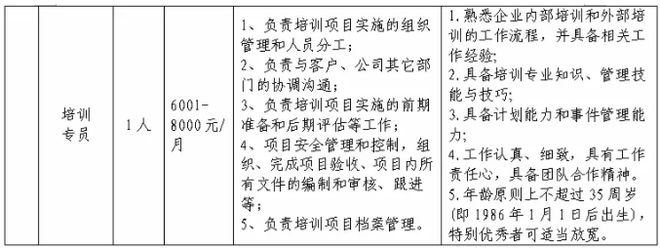 培训
专员
1人
6001-
8000元/
月
1、负责培训项目实施的组织
管理和人员分工；
2、负责与客户、公司其它部
门的协调沟通；
3、负责培训项目实施的前期
准备和后期评估等工作；
4、项目安全管理和控制，组
织、完成项目验收、项目内所
有文件的编制和审核、跟进
等；
5、负责培训项目档案管理。
1.熟悉企业内部培训和外部培
训的工作流程，并具备相关工
作经验；
2.具备培训专业知识、管理技
能与技巧；
3.具备计划能力和事件管理能
力；
4.工作认真、细致，具有工作
责任心，具备团队合作精神。
5.年龄原则上不超过35周岁
(即1986年1月1日后出生)，
特别优秀者可适当放宽。